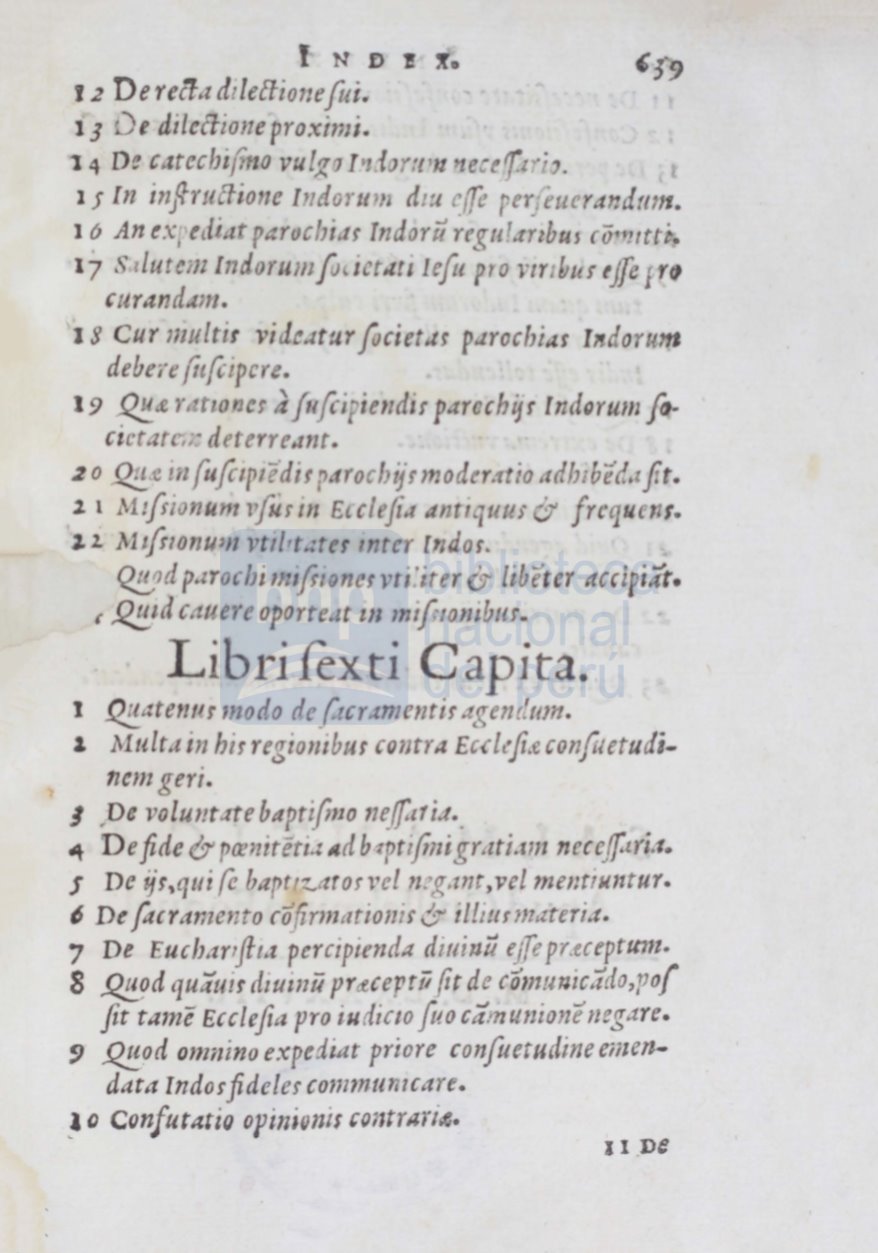 INDEX. 639
12 De recta dilectione sui.
13 De dilectione proximi.
14 De catechiſmo vulgo Indorum neceſſario.
15 In inſtructione Indorum diu eſſe perſeuerandum.
16 An expediat parochias Indorū regularibus cōmitti.
17 Salutem Indorum ſocietati Ieſu pro viribus eſſe pro
curandam.
18 Cur multis videatur ſocietas parochias Indorum
debere ſuſcipere.
19 Quæ rationes à ſuſcipiendis parochijs Indorum ſo-
cietatem deterreant.
20 Quæ in ſuſcipiēdis parochijs moderatio adhibēda ſit.
21 Miſsionum vſus in Eccleſia antiquus & frequens.
22 Miſsionum vtilitates inter Indos.
Quod parochi miſsiones vtiliter & libēter accipiāt.
Quid cauere oporteat in miſsionibus.
biblioteca
nacional
del perú
bnp
Libri ſexti Capita.
1 Quatenus modo de ſacramentis agendum.
2 Multa in his regionibus contra Eccleſiæ conſuetudi-
nem geri.
3 De voluntate baptiſmo neſſaria.
4 De fide & pœnitētia ad baptiſmi gratiam neceſſaria.
5 De ijs, qui ſe baptizatos vel negant, vel mentiuntur.
6 De ſacramento cōfirmationis & illius materia.
7 De Euchariſtia percipienda diuinū eſſe præceptum.
8 Quod quāuis diuinū præceptū ſit de cōmunicādo, poſ
ſit tamē Eccleſia pro iudicio ſuo cāmunionē negare.
9 Quod omnino expediat priore conſuetudine emen-
data Indos fideles communicare.
10 Confutatio opinionis contrariæ.
11 De